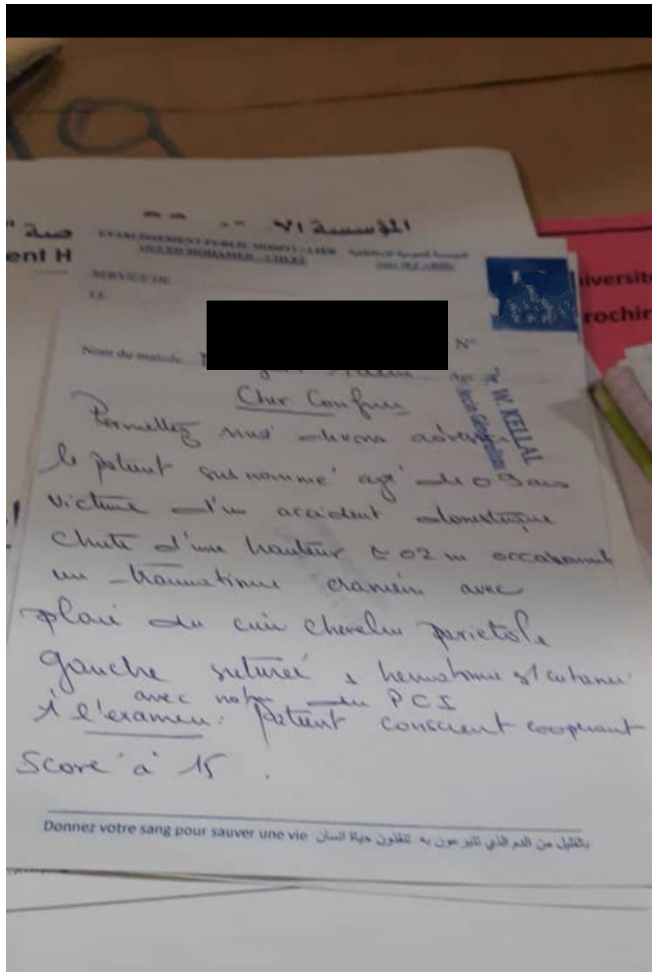 المؤسسة
ent H
ETABLISSEMENT PUBLIC HOSPITALIER
SERVICE DE
LE
iversit
rochir
Nom du malade
N°
Age
Dr W. KELLAL
Cher Confrere
Permettez moi adresser
le patient susnommé agé de 09 ans
victime d'un accident domestique
chute d'une hauteur ≈ 02 m occasionnant
un traumatisme cranien avec
plaie du cuir chevelu parietale
gauche suturée + hematome s/cutané
avec notion de PCI
à l'examen: patient conscient cooperant
Score à 15.
Donnez votre sang pour sauver une vie بالقليل من الدم الذي تتبرعون به تنقذون حياة انسان